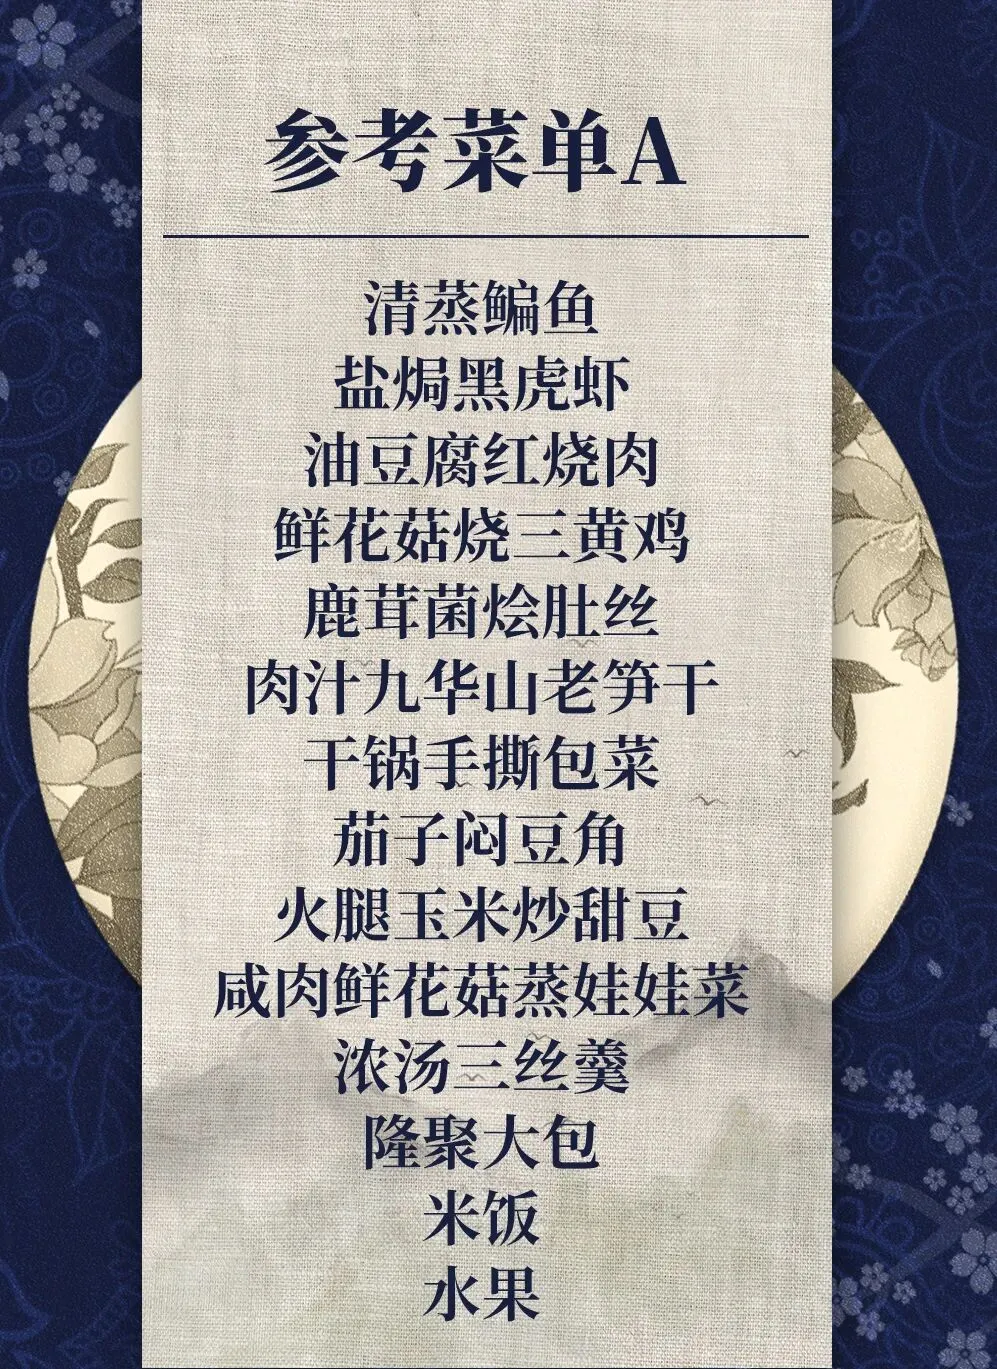 参考菜单A
清蒸鳊鱼
盐焗黑虎虾
油豆腐红烧肉
鲜花菇烧三黄鸡
鹿茸菌烩肚丝
肉汁九华山老笋干
干锅手撕包菜
茄子闷豆角
火腿玉米炒甜豆
咸肉鲜花菇蒸娃娃菜
浓汤三丝羹
隆聚大包
米饭
水果